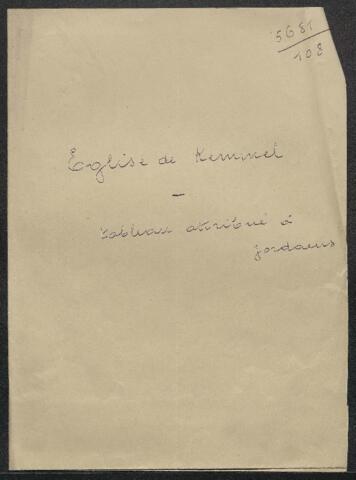 5681
108
Eglise de Kemmel
—
tableau attribué à
Jordaens